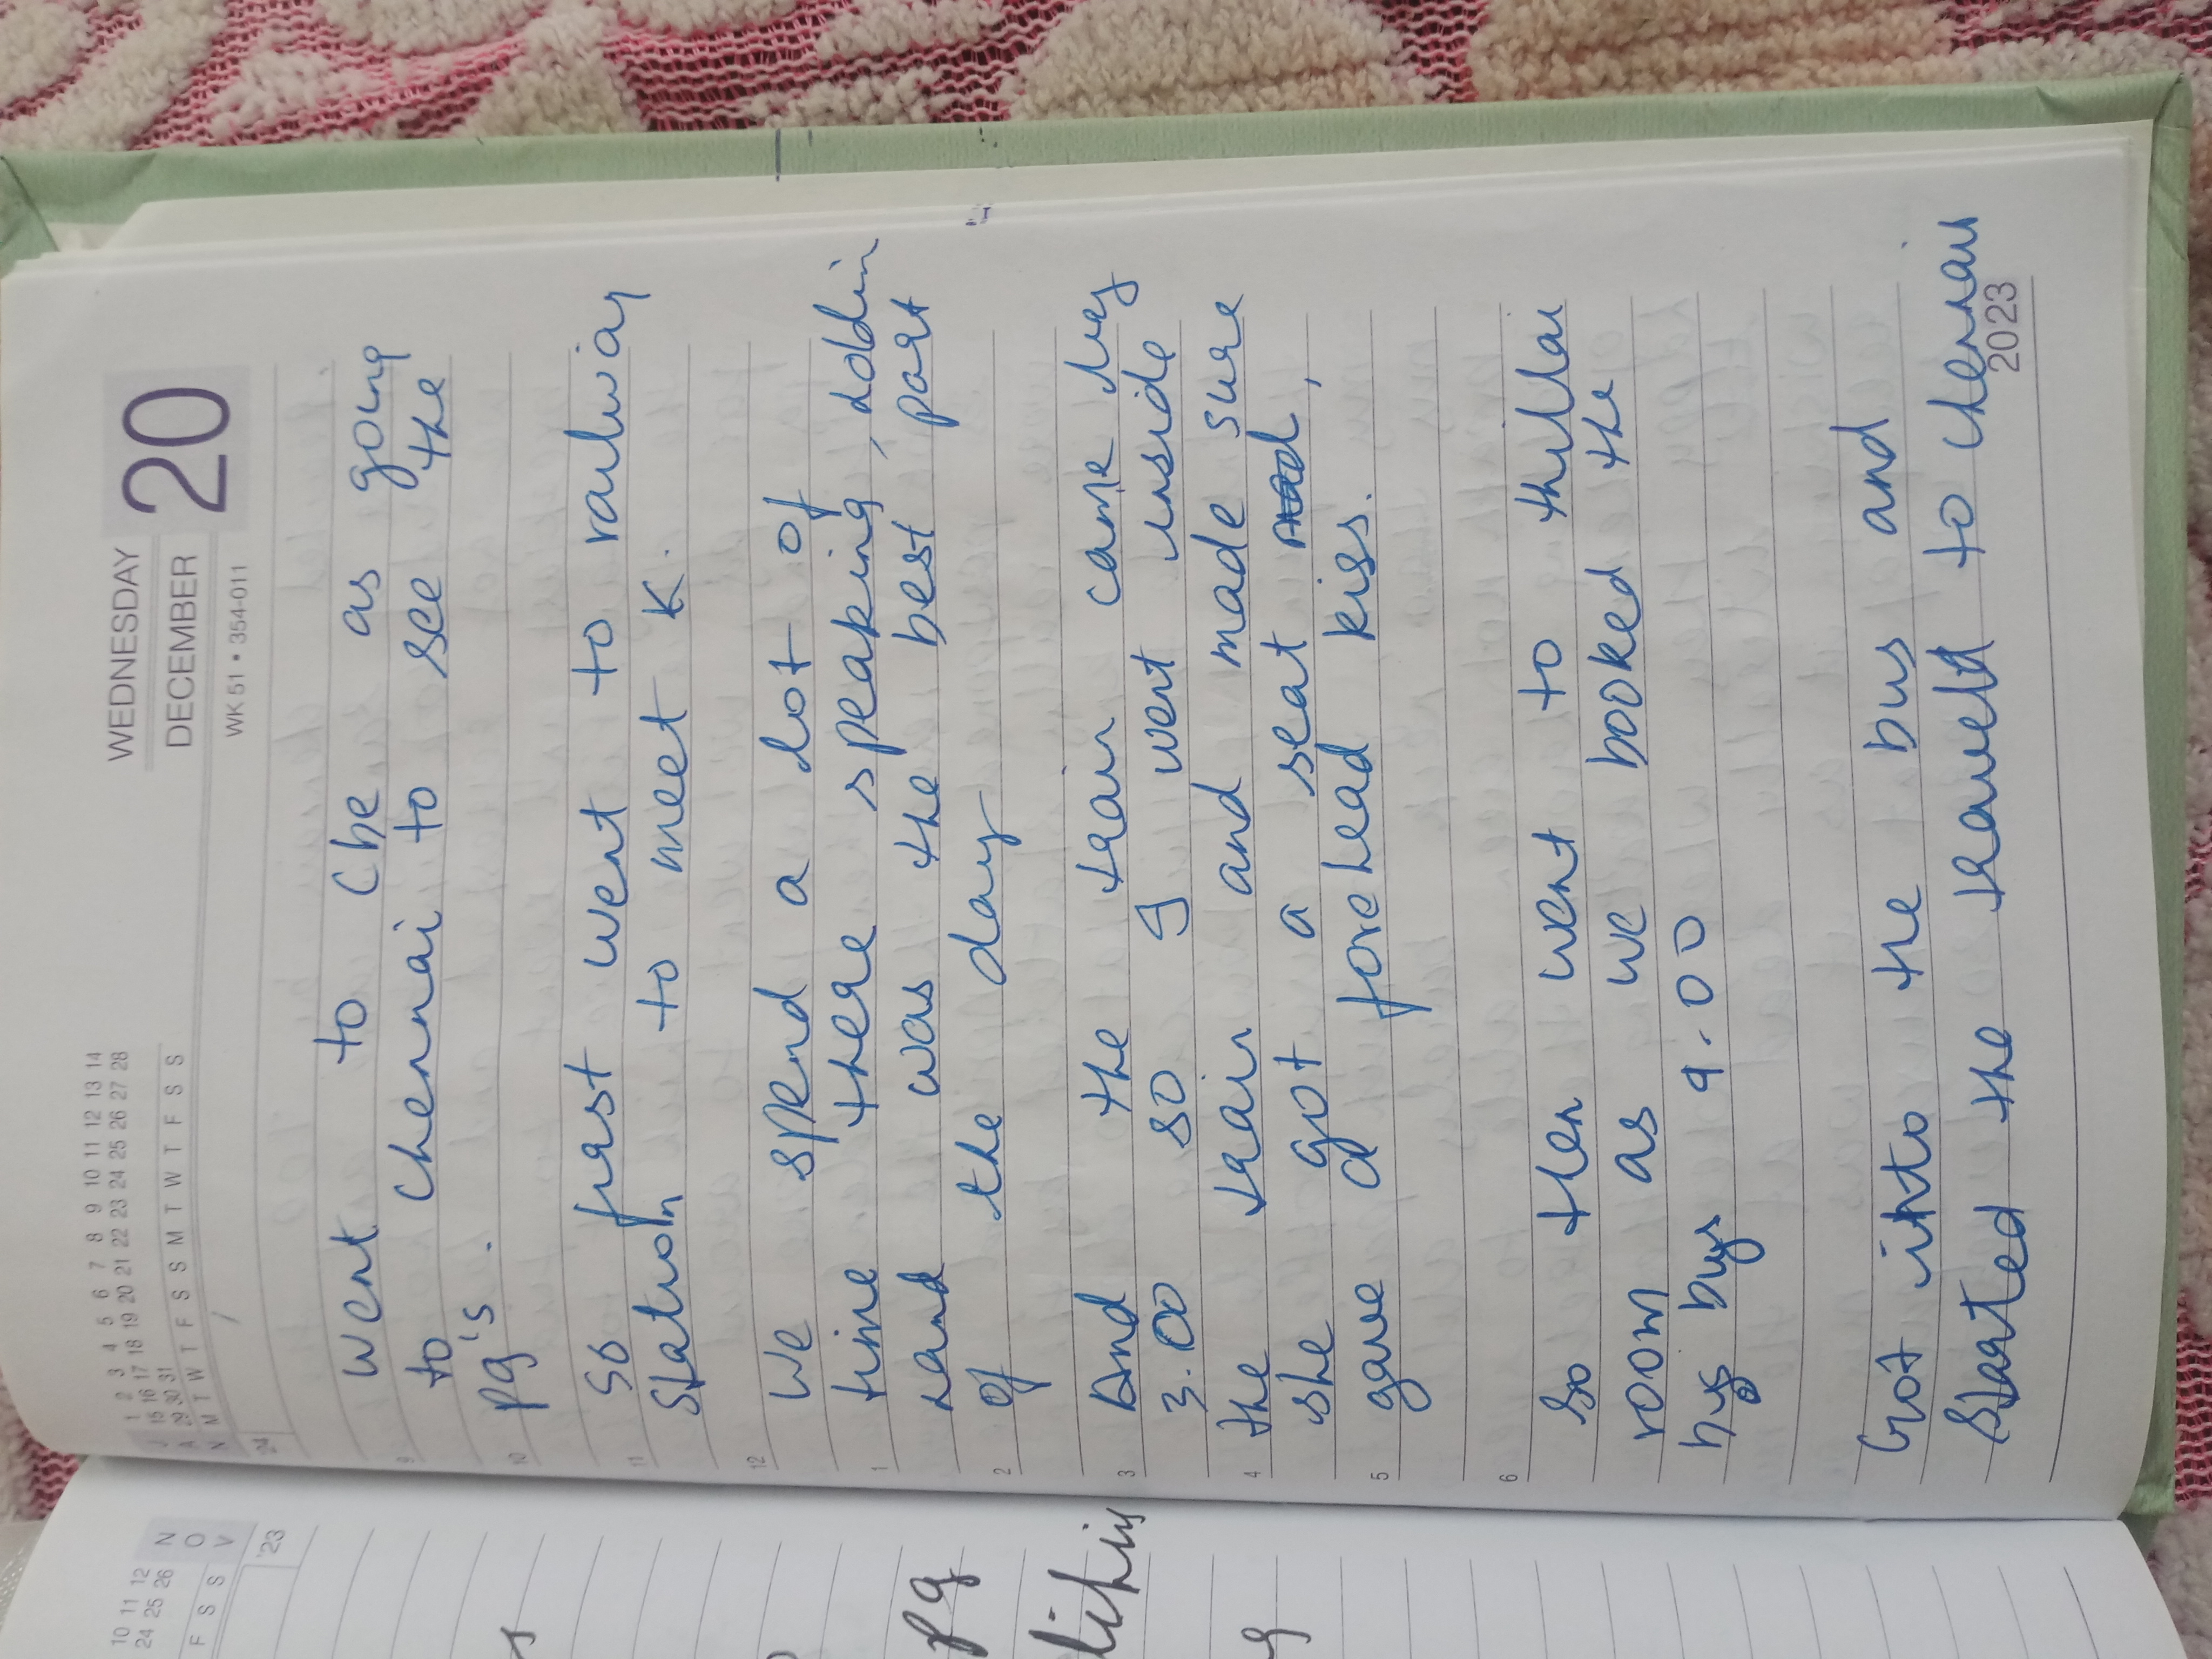 10 11 12
24 25 26
F S S
NOV
'23
s
pg
g
1 2 3 4 5 6 7 8 9 10 11 12 13 14
15 16 17 18 19 20 21 22 23 24 25 26 27 28
29 30 31
M T W T F S S M T W T F S S
JAN
'24
WEDNESDAY
DECEMBER
20
WK 51 • 354-011
went to Cbe as going
9
to Chennai to see the
10
pg's.
So first went to railway
11
station to meet K.
12
We spend a lot of
time there speaking, holdin
1
hand was the best part
2
of the day
And the train came by
3
3.00 so I went inside
4
the train and made sure
she got a seat ,
gave a forehead kiss.
5
6
So then went to thillai
room as we booked the
bus 9.00
Got into the bus and
started the travel to chennai
2023